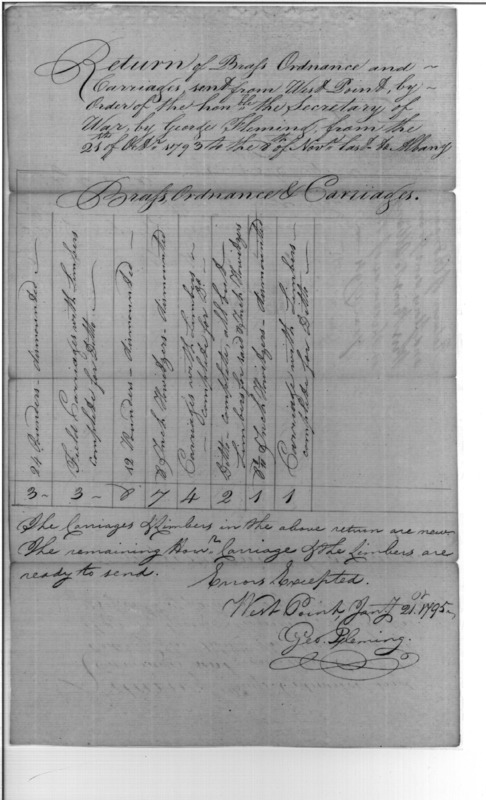 Return of Brass Ordnance and ~
Carriages, sent from West Point, by ~
Order of the honble the Secretary of
War, by George Fleming, from the
25th of Octr 1793 to the 8th of Novr last to Albany
Brass Ordnance & Carriages.
24 Pounders - dismounted
Field Carriages with Limbers
complete for Ditto
12 Pounders - dismounted
8 Inch Howitzers - dismounted
Carriages with Limbers
complete for Do
Ditto complete all but
Limbers for said 8 Inch Howitzers
5½ Inch Howitzers - dismounted
Carriage with Limber
complete for Ditto
3 3 8 7 4 2 1 1
The Carriages & Limbers in the above return are new.
The remaining Howr Carriage & the Limbers are
ready to send. Errors Excepted.
West Point, Jany 21st 1795
Geo. Fleming.